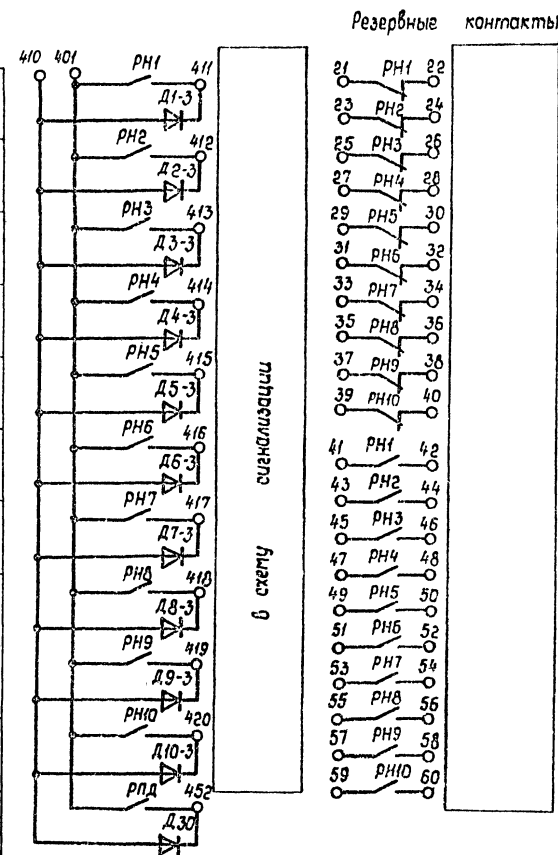 Резервные контакты
410 401 РН1 411
Д1-3
РН2 412
Д2-3
РН3 413
Д3-3
РН4 414
Д4-3
РН5 415
Д5-3
РН6 416
Д6-3
РН7 417
Д7-3
РН8 418
Д8-3
РН9 419
Д9-3
РН10 420
Д10-3
РПД 452
Д30
в схему сигнализации
21 РН1 22
23 РН2 24
25 РН3 26
27 РН4 28
29 РН5 30
31 РН6 32
33 РН7 34
35 РН8 36
37 РН9 38
39 РН10 40
41 РН1 42
43 РН2 44
45 РН3 46
47 РН4 48
49 РН5 50
51 РН6 52
53 РН7 54
55 РН8 56
57 РН9 58
59 РН10 60